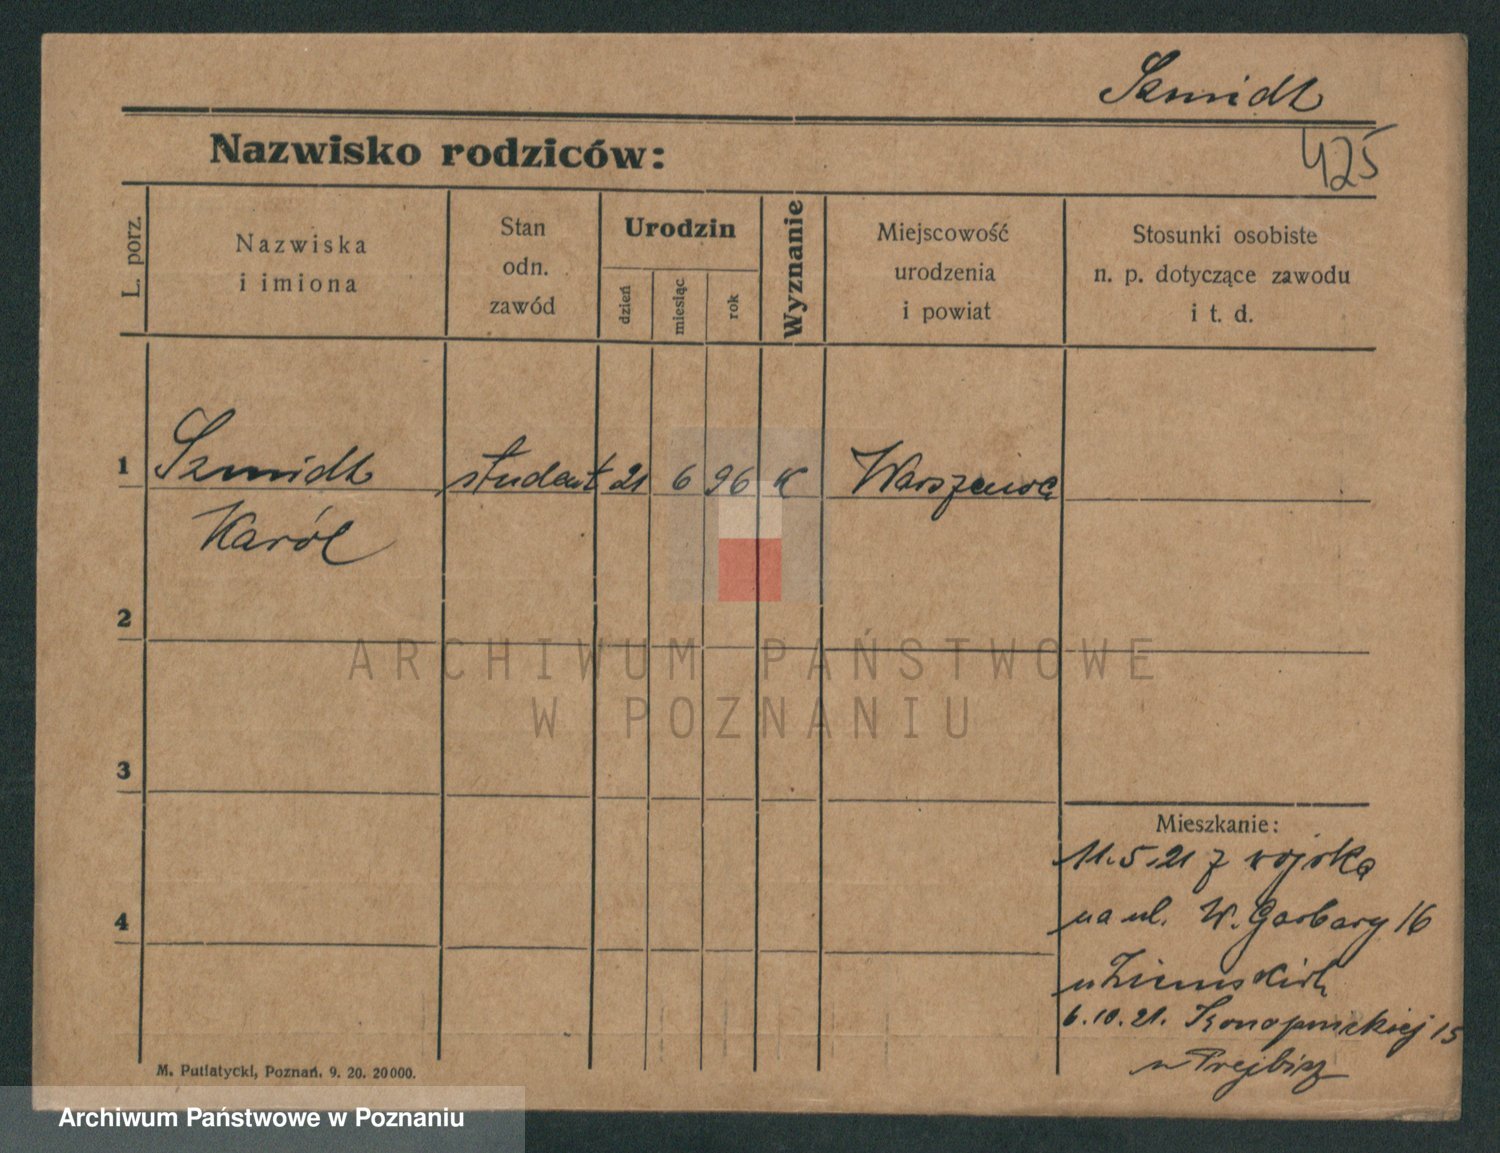 Szmidt
425
Nazwisko rodziców:
L. porz.
Nazwiska
i imiona
Stan
odn.
zawód
Urodzin
dzień
miesiąc
rok
Wyznanie
Miejscowość
urodzenia
i powiat
Stosunki osobiste
n. p. dotyczące zawodu
i t. d.
1
Szmidt
student 21 6 96 K Warszawa
Karól
2
3
4
Mieszkanie:
11.5.21 z wojska
na ul. W. Garbary 16
u Ziemskich
6.10.21. Konopnickiej 15
M. Putiatycki, Poznań. 9. 20. 20000.
ARCHIWUM PAŃSTWOWE
W POZNANIU
Archiwum Państwowe w Poznaniu